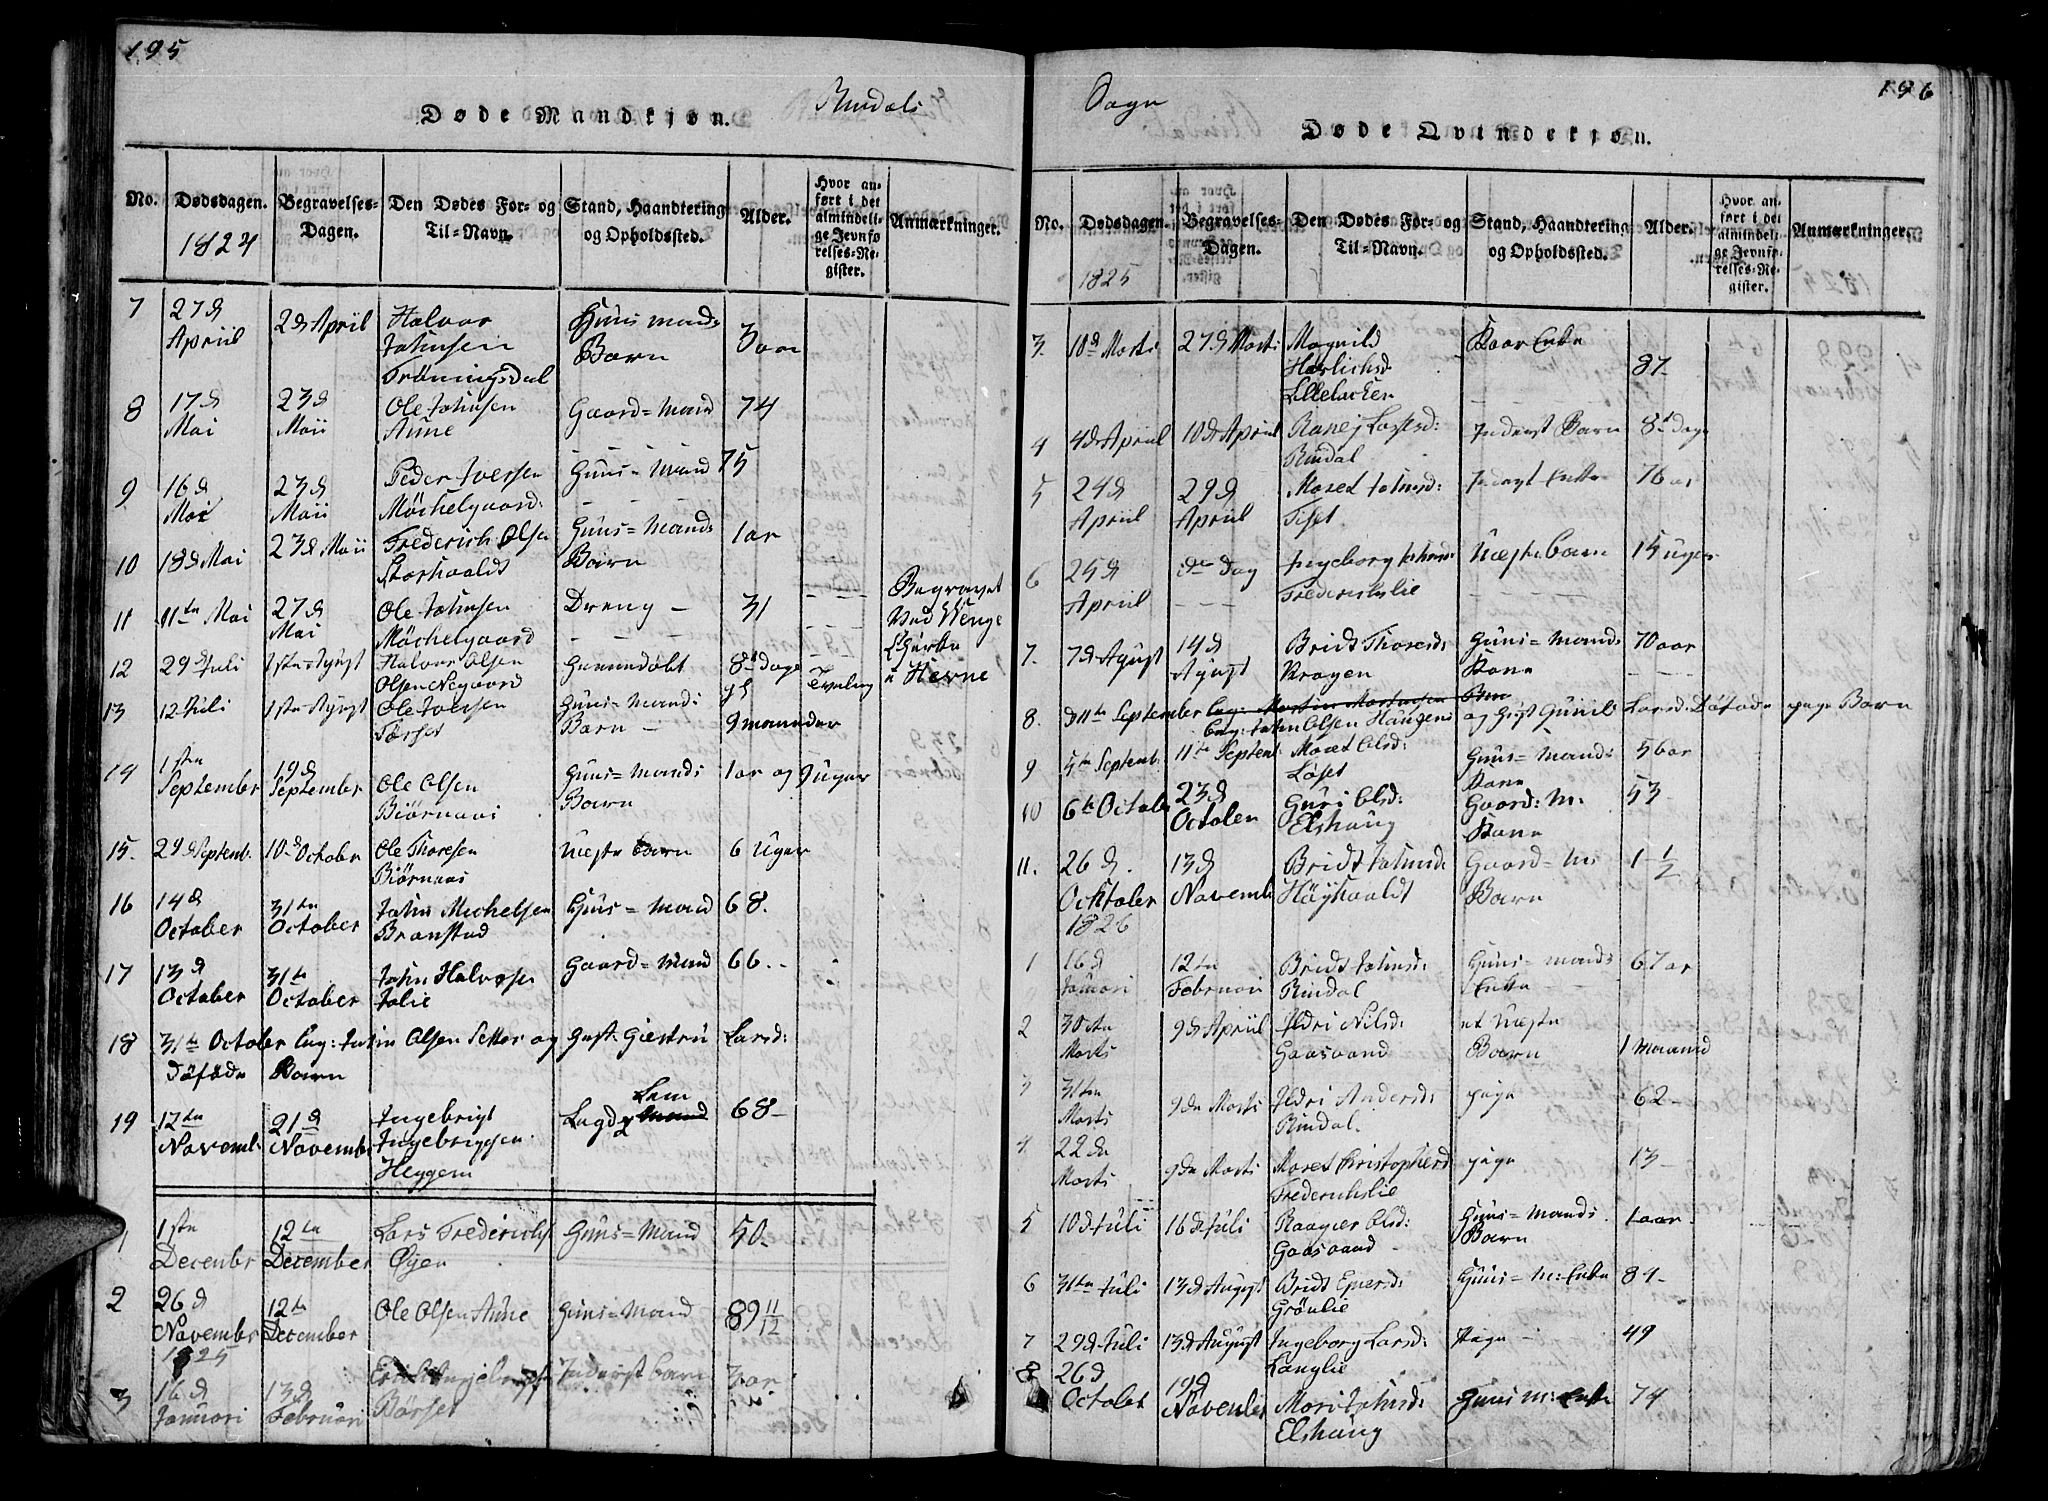 195
Døde Mandkjøn.
Rindals
No.
Dødsdagen.
1824
Begravelses-
Dagen.
Den Dødes For- og
Til-Navn.
Stand, Haandtering
og Opholdssted.
Alder.
Hvor an-
ført i det
almindeli-
ge Jevnfø
relses-Re-
gister.
Anmærkninger.
7 27d Apriil 2d Apriil Halvor
Johnsen
Trønningsdal
Huus mands
Barn
3 aar
8 17d Mai 23d Maii Ole Johnsen
Aune
Gaard=Mand 74
9 16d Mai 23d Maii Peder Iversen
Möchelgaard:
Huus=Mand 75
10 18d Mai 23d Maii Frederich Olsen
Storhaaldt
Huus=Mands
Barn
1 ar
11 11te Mai 27d Mai Ole Johnsen
Möchelgaard
Dreng - 31
Begravet
Ved Wenge
Kjerke
i Hevne
12 29d Juli 1ste Augst Halvor Olsen
Olsen Negaard
8te Dage
Tvilling
13 12 Juli 1ste Augst Ole Iversen
Torset
Huus=Mands
Barn -
9 maaneder
14 1ste
September
19d
September
Ole Olsen
Biørnaas
Huus=Mands
Barn
1 ar og 9 uger
15. 29d Septemb. 10d October Ole Thoresen
Biørnaas
Uægte Barn 6 Uger
16 14d
October
31te
October
John Michelsen
Brænstad
Huus=Mand 68.
17 13d
October
31te
October
John Halvorsen
Jolie
Gaard=Mand 66.
18 31te October Ung: John Olsen Setter og Gust: Giestru Larsd:
Döföde Barn
19 17te
Novemb.
21d
Novemb
Ingebrigt
Ingebrigtsen
Heggem
Lem
Lægd Mand
68-
1 1ste
Decembr
12te
December
Lars Frederichs.
Øyen
Huus=Mand 50.
2 26d
November
12te
December
Ole Olsen Aune Huus=Mand 89 11/12
1825
3 16d
Januari
13d
Februari
Börset
Inderst barn 3 ar
Sogn
196
Døde Qvindekjøn.
No.
Dødsdagen.
1825
Begravelses-
Dagen.
Den Dødes For- og
Til-Navn.
Stand, Haandtering
og Opholdssted.
Alder.
Hvor an-
ført i det
almindeli-
ge Jevnfø-
relses-Re-
gister.
Anmærkninger.
3. 18d Marti 27d Marti Magnild
Herlichsd
Lilleløcken
Kaar Enke 87-
4 4d Apriil 10d Apriil Ranej Larsd:
Rindal
Inderst Barn 8te dage
5 24d
Apriil
29d
Apriil
Maret Johnsd:
Tiset
Inderst Enke 76 ar
6 25d
Apriil
do Dag Ingeborg Johnsd:
Frederichslie
Uægte barn 15 uger
7. 7d Augst 14d
Augst
Bridt Thoresd:
Kragen
Huus=Mands
Kone
70 aar
8. d 11te September Ung: Morten Mortensen
Ung: John Olsen Haugens og Gust Gunild Larsd: Döföde pige Barn
9 4te Septemb. 11te Septemb. Maret Olsd:
Løset
Huus=Mands
Kone
56 ar
10 6te October 23d
October
Guri Olsd:
Elshaug
Gaard: M:
Kone
53
11. 26d.
Ocktober
13d
Novemb
Bridt Johnsd:
Höyhaaldt
Gaard=M:
Barn
1 1/2
1826
1 16d
Januari
12te
Februari
Bridt Johnsd:
Rindal
Huus=Mands
Enke
67 ar
2 30te
Marti
9d Apriil Ildri Nilsd:
Gaasvand
et Uægte
Barn
1 Maaned
3 31te
Marti
9de Marti Ildri Andersd:
Rindal.
pige 62-
4 22d
Marti
9de Marti Maret Christophersd
Frederichslie
pige 13-
5 10d Juli 16d Juli Raagier Olsd:
Gaasvand
Huus=Mands
Barn
1 aar.
6 31te Juli 13d Augst Bridt Eversd:
Grönlie
Huus=M: Enke 84-
7 29d Juli 13d August Ingeborg Larsd:
Langlie
Pige - 49
8 26d
October
19d
November
Mari Johnsd:
Elshaug
Huus M: Enke 74